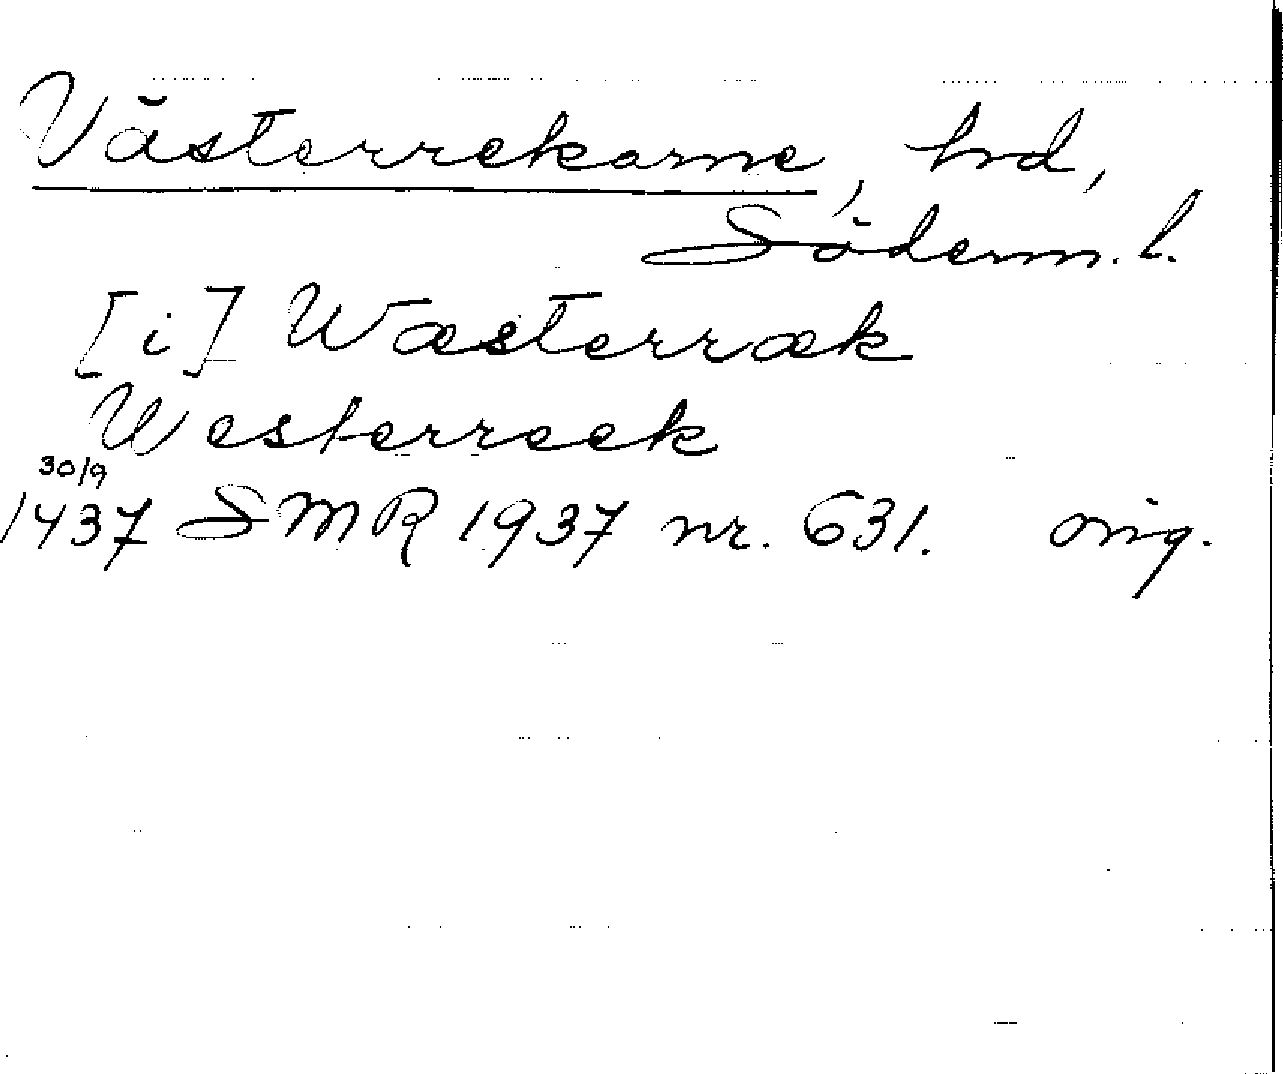 Västerrekarne, hrd,
Söderm. l.
[i] Wæsterræk
Westerreek
30/9
1437 SMR 1937 nr. 631. orig.